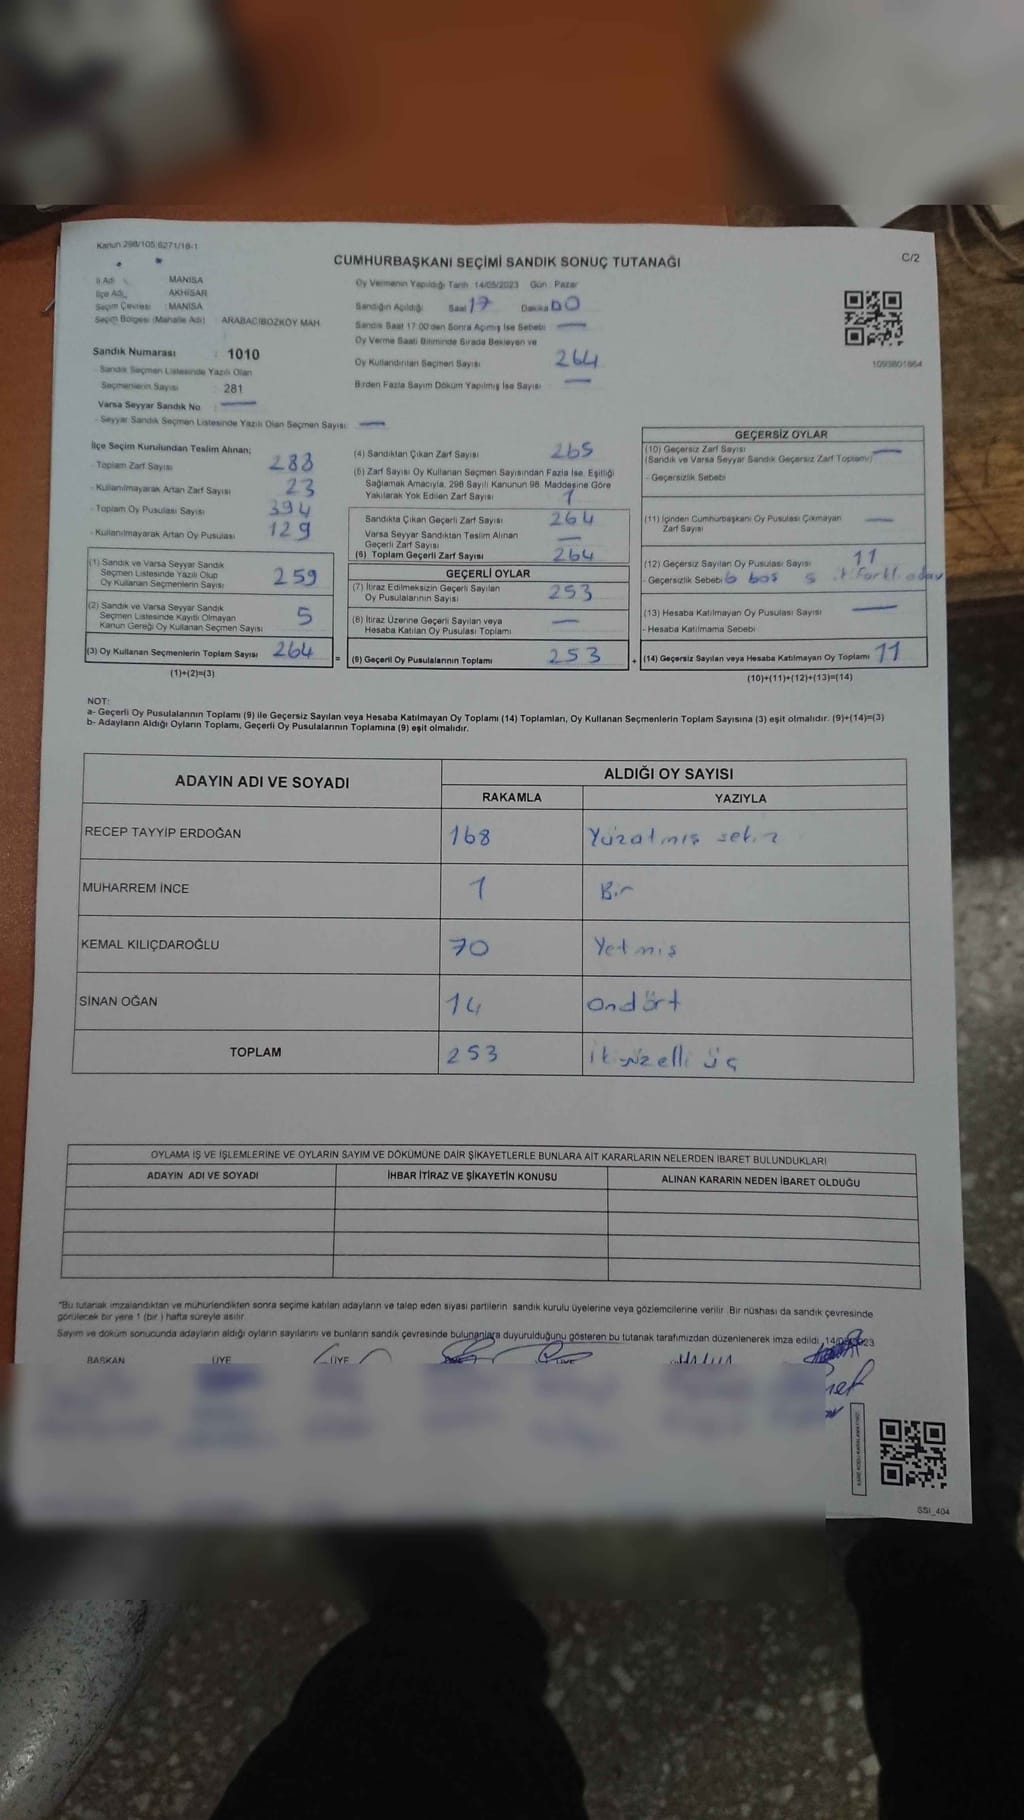 Kanun 298/105,6271/18-1
CUMHURBAŞKANI SEÇİMİ SANDIK SONUÇ TUTANAĞI
C/2
İl Adı : MANİSA
İlçe Adı : AKHİSAR
Seçim Çevresi : MANİSA
Seçim Bölgesi (Mahalle Adı) ARABACIBOZKÖY MAH.
Sandık Numarası : 1010
- Sandık Seçmen Listesinde Yazılı Olan
Seçmenlerin Sayısı : 281
Varsa Seyyar Sandık No : —
- Seyyar Sandık Seçmen Listesinde Yazılı Olan Seçmen Sayısı: —
Oy Vermenin Yapıldığı Tarih 14/05/2023 Gün : Pazar
Sandığın Açıldığı Saat 17 Dakika 00
Sandık Saat 17:00'den Sonra Açımış İse Sebebi —
Oy Verme Saati Bitiminde Sırada Bekleyen ve
Oy Kullandırılan Seçmen Sayısı 264
Birden Fazla Sayım Döküm Yapılmış İse Sayısı —
1093601664
İlçe Seçim Kurulundan Teslim Alınan;
- Toplam Zarf Sayısı 288
- Kullanılmayarak Artan Zarf Sayısı 23
- Toplam Oy Pusulası Sayısı 394
- Kullanılmayarak Artan Oy Pusulası 129
(1) Sandık ve Varsa Seyyar Sandık
Seçmen Listesinde Yazılı Olup
Oy Kullanan Seçmenlerin Sayısı 259
(2) Sandık ve Varsa Seyyar Sandık
Seçmen Listesinde Kayıtlı Olmayan
Kanun Gereği Oy Kullanan Seçmen Sayısı 5
(3) Oy Kullanan Seçmenlerin Toplam Sayısı 264 =
(1)+(2)=(3)
(4) Sandıktan Çıkan Zarf Sayısı 265
(5) Zarf Sayısı Oy Kullanan Seçmen Sayısından Fazla İse, Eşitliği
Sağlamak Amacıyla, 298 Sayılı Kanunun 98. Maddesine Göre
Yakılarak Yok Edilen Zarf Sayısı 1
Sandıkta Çıkan Geçerli Zarf Sayısı 264
Varsa Seyyar Sandıktan Teslim Alınan
Geçerli Zarf Sayısı —
(6) Toplam Geçerli Zarf Sayısı 264
GEÇERLİ OYLAR
(7) İtiraz Edilmeksizin Geçerli Sayılan
Oy Pusulalarının Sayısı 253
(8) İtiraz Üzerine Geçerli Sayılan veya
Hesaba Katılan Oy Pusulası Toplamı —
(9) Geçerli Oy Pusulalarının Toplamı 253 +
GEÇERSİZ OYLAR
(10) Geçersiz Zarf Sayısı —
(Sandık ve Varsa Seyyar Sandık Geçersiz Zarf Toplamı)
- Geçersizlik Sebebi
(11) İçinden Cumhurbaşkanı Oy Pusulası Çıkmayan
Zarf Sayısı —
(12) Geçersiz Sayılan Oy Pusulası Sayısı 11
- Geçersizlik Sebebi 6 boş 5
(13) Hesaba Katılmayan Oy Pusulası Sayısı —
- Hesaba Katılmama Sebebi
(14) Geçersiz Sayılan veya Hesaba Katılmayan Oy Toplamı 11
(10)+(11)+(12)+(13)=(14)
NOT:
a- Geçerli Oy Pusulalarının Toplamı (9) ile Geçersiz Sayılan veya Hesaba Katılmayan Oy Toplamı (14) Toplamları, Oy Kullanan Seçmenlerin Toplam Sayısına (3) eşit olmalıdır. (9)+(14)=(3)
b- Adayların Aldığı Oyların Toplamı, Geçerli Oy Pusulalarının Toplamına (9) eşit olmalıdır.
ADAYIN ADI VE SOYADI ALDIĞI OY SAYISI
RAKAMLA YAZIYLA
RECEP TAYYİP ERDOĞAN 168 Yüzatmış sekiz
MUHARREM İNCE 1 Bir
KEMAL KILIÇDAROĞLU 70 Yetmiş
SİNAN OĞAN 14 ondört
TOPLAM 253 ikiyüzelli üç
OYLAMA İŞ VE İŞLEMLERİNE VE OYLARIN SAYIM VE DÖKÜMÜNE DAİR ŞİKAYETLERLE BUNLARA AİT KARARLARIN NELERDEN İBARET BULUNDUKLARI
ADAYIN ADI VE SOYADI İHBAR İTİRAZ VE ŞİKAYETİN KONUSU ALINAN KARARIN NEDEN İBARET OLDUĞU
"Bu tutanak imzalandıktan ve mühürlendikten sonra seçime katılan adayların ve talep eden siyasi partilerin sandık kurulu üyelerine veya gözlemcilerine verilir. Bir nüshası da sandık çevresinde
görülecek bir yere 1 (bir ) hafta süreyle asılır.
Sayım ve döküm sonucunda adayların aldığı oyların sayılarını ve bunların sandık çevresinde bulunanlara duyurulduğunu gösteren bu tutanak tarafımızdan düzenlenerek imza edildi.
BAŞKAN ÜYE ÜYE ÜYE
SSI_404